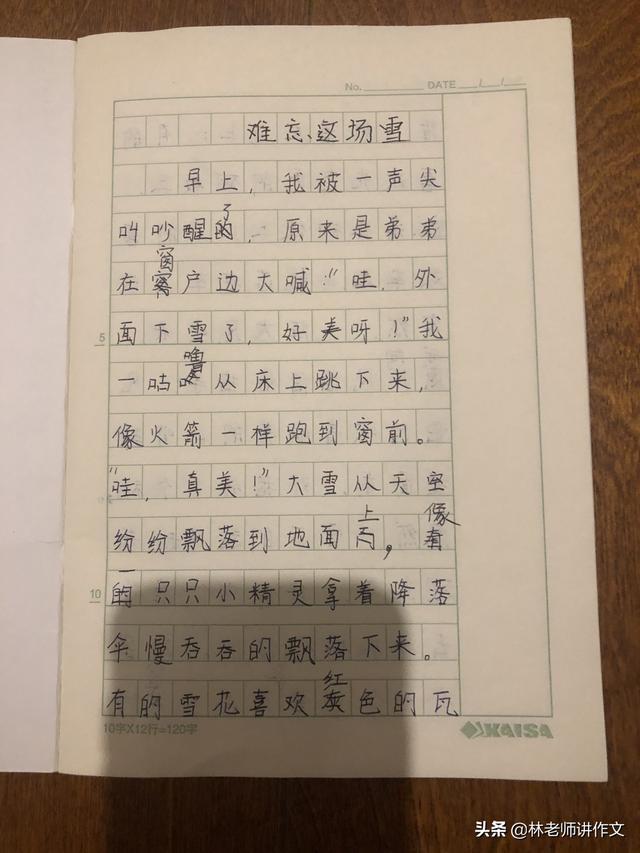 No. DATE / /
难忘这场雪
早上，我被一声尖
叫吵醒了，原来是弟弟
在窗户边大喊："哇，外
面下雪了，好美呀！"我
一咕噜从床上跳下来，
像火箭一样跑到窗前。
"哇，真美！"大雪从天空
纷纷飘落到地面上，像
一只只小精灵拿着降落
伞慢吞吞的飘落下来。
有的雪花喜欢红色的瓦
5
10
10字X12行=120字
KAISA
头条 @林老师讲作文